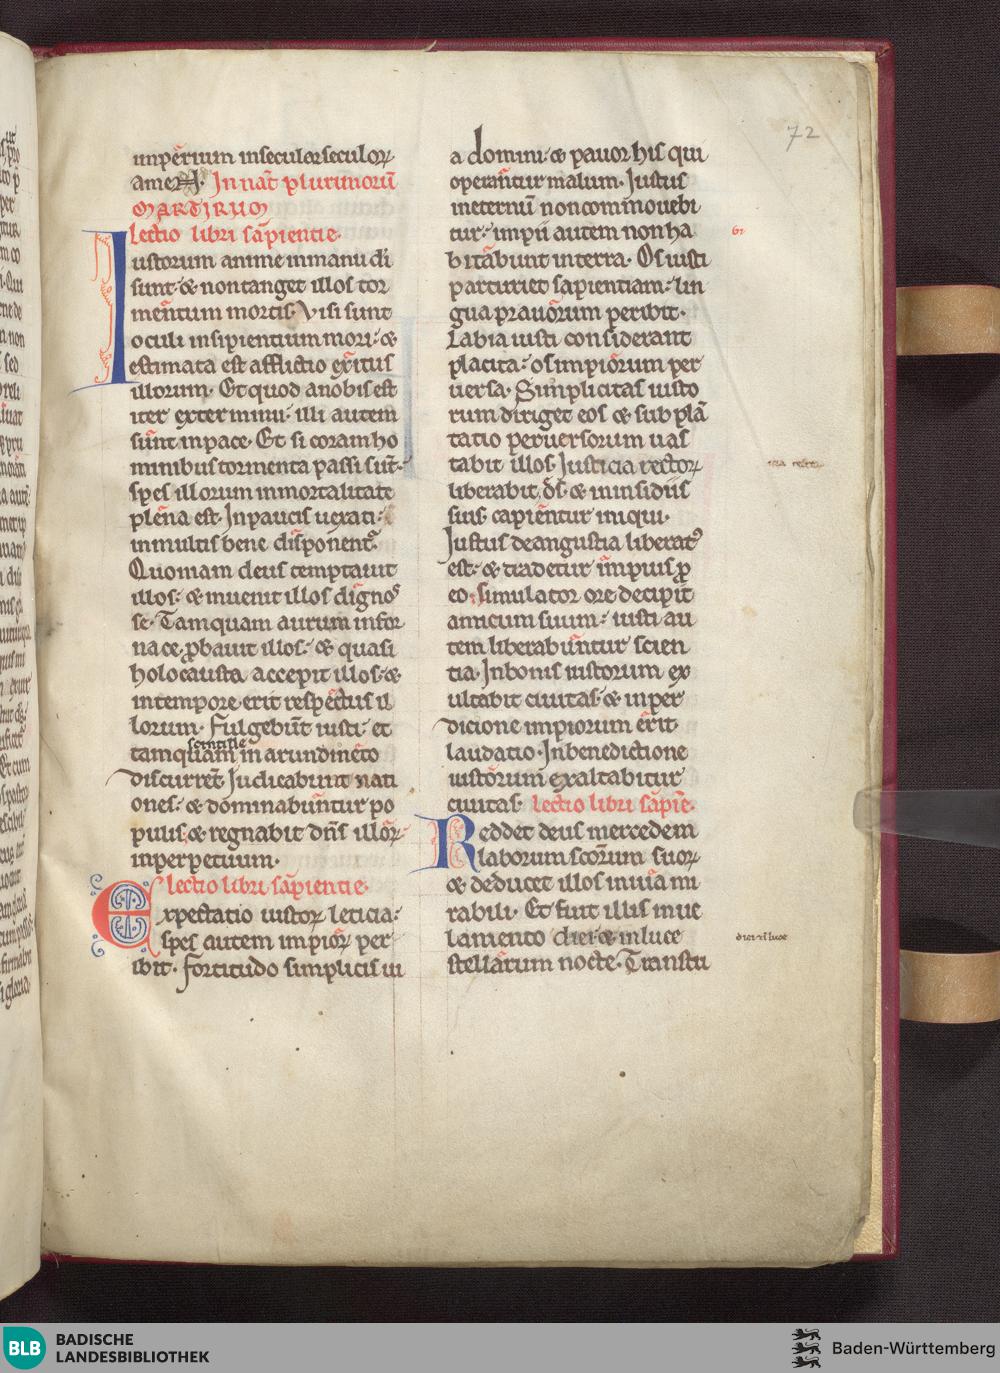 72
imperium insecula seculoꝝ
amen. In nat̄ plurimorū
MARTIRUM
lectio libri sapientie.
Iustorum anime inmanu di
sunt. & nontanget illos tor
mentum mortis. Visi sunt
oculi insipientium mori. &
estimata est afflictio exitus
illorum. Et quod anobis est
iter exterminii. illi autem
sunt inpace. Et si coram ho
minibus tormenta passi sūt.
spes illorum inmortalitate
plena est. Inpaucis uexati.
inmultis bene disponent᷑.
Quoniam deus temptauit
illos. & inuenit illos dignos
se. Tamquam aurum infor
nace ꝓbauit illos. & quasi
holocausta accepit illos. &
intempore erit respectus il
lorum. Fulgebūt iusti. et
scintille
tamquam in arundineto
discurret. Iudicabunt nati
ones. & dominabuntur po
pulis. & regnabit dn̄s illoꝝ
inperpetuum.
lectio libri sapientie.
Expectatio iustoꝝ leticia.
spes autem impioꝝ per
ibit. Fortitudo simplicis ui
a domini. & pauor his qui
operantur malum. Iustus
ineternū noncommouebi
tur. impii autem non ha
bitabunt interra. Os iusti
parturiet sapientiam. lin
gua prauorum peribit.
Labia iusti considerant
placita. os impiorum per
uersa. Simplicitas iusto
rum diriget eos & subplā
tatio peruersorum uas
tabit illos. Iusticia rectoꝝ
liberabit. ds̄. & ininsidiis
suis capientur iniqui.
Iustus deangustia liberat᷑
est. & tradetur impius ꝓ
eo. simulator ore decipit
amicum suum. iusti au
tem liberabuntur scien
tia. Inbonis iustorum ex
ultabit ciuitas. & inper
dicione impiorum erit
laudatio. Inbenedictione
iustorum exaltabitur
ciuitas. lectio libri sapiē.
Reddet deus mercedem
laborum scōrum suoꝝ
& deducet illos inuia mi
rabili. Et fuit illis inue
lamento diei & inluce
stellarum nocte. Transtu
BLB BADISCHE
LANDESBIBLIOTHEK
Baden-Württemberg